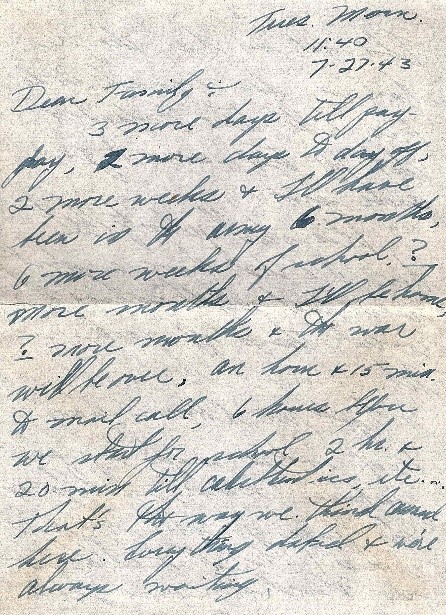 Tues. Morn.
11:40
7-27-43
Dear Family:-
3 more days till pay-
day, 2 more days to day off,
2 more weeks & I'll have
been in the army 6 months,
6 more weeks of school, ?
more months & I'll be home,
? more months & the war
will be over, an hour & 15 min.
to mail call, 6 hours before
we start for school, 2 hr. &
20 min till calisthenics, etc...
That's the way we think around
here. Everything dated & we're
always waiting.